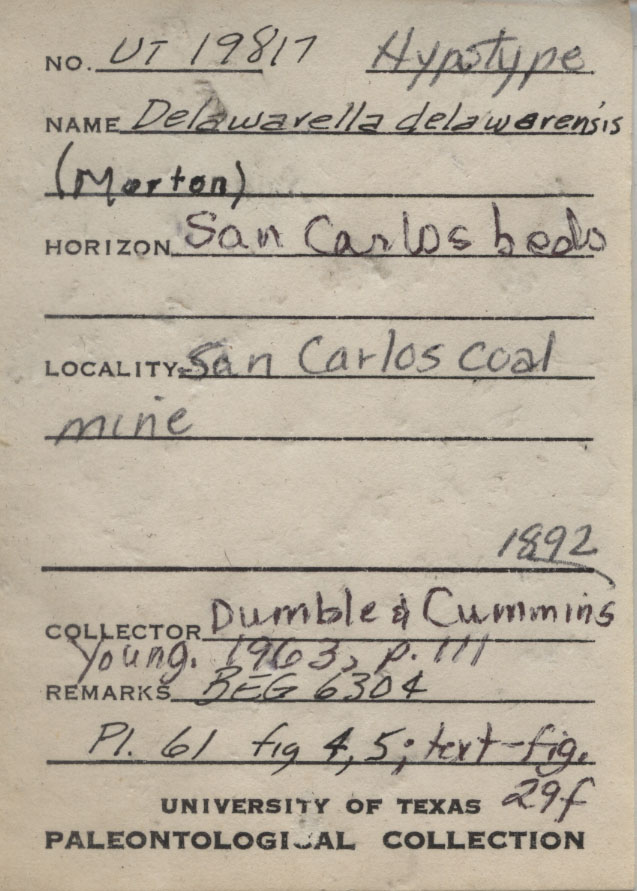 NO. UT 19817 Hypotype
NAME Delawarella delawarensis
(Morton)
HORIZON San Carlos beds
LOCALITY San Carlos coal
mine
1892
COLLECTOR Dumble & Cummins
Young. 1963, p. 111
REMARKS BEG 6304
Pl. 61 fig 4,5; text-fig.
29f
UNIVERSITY OF TEXAS
PALEONTOLOGICAL COLLECTION